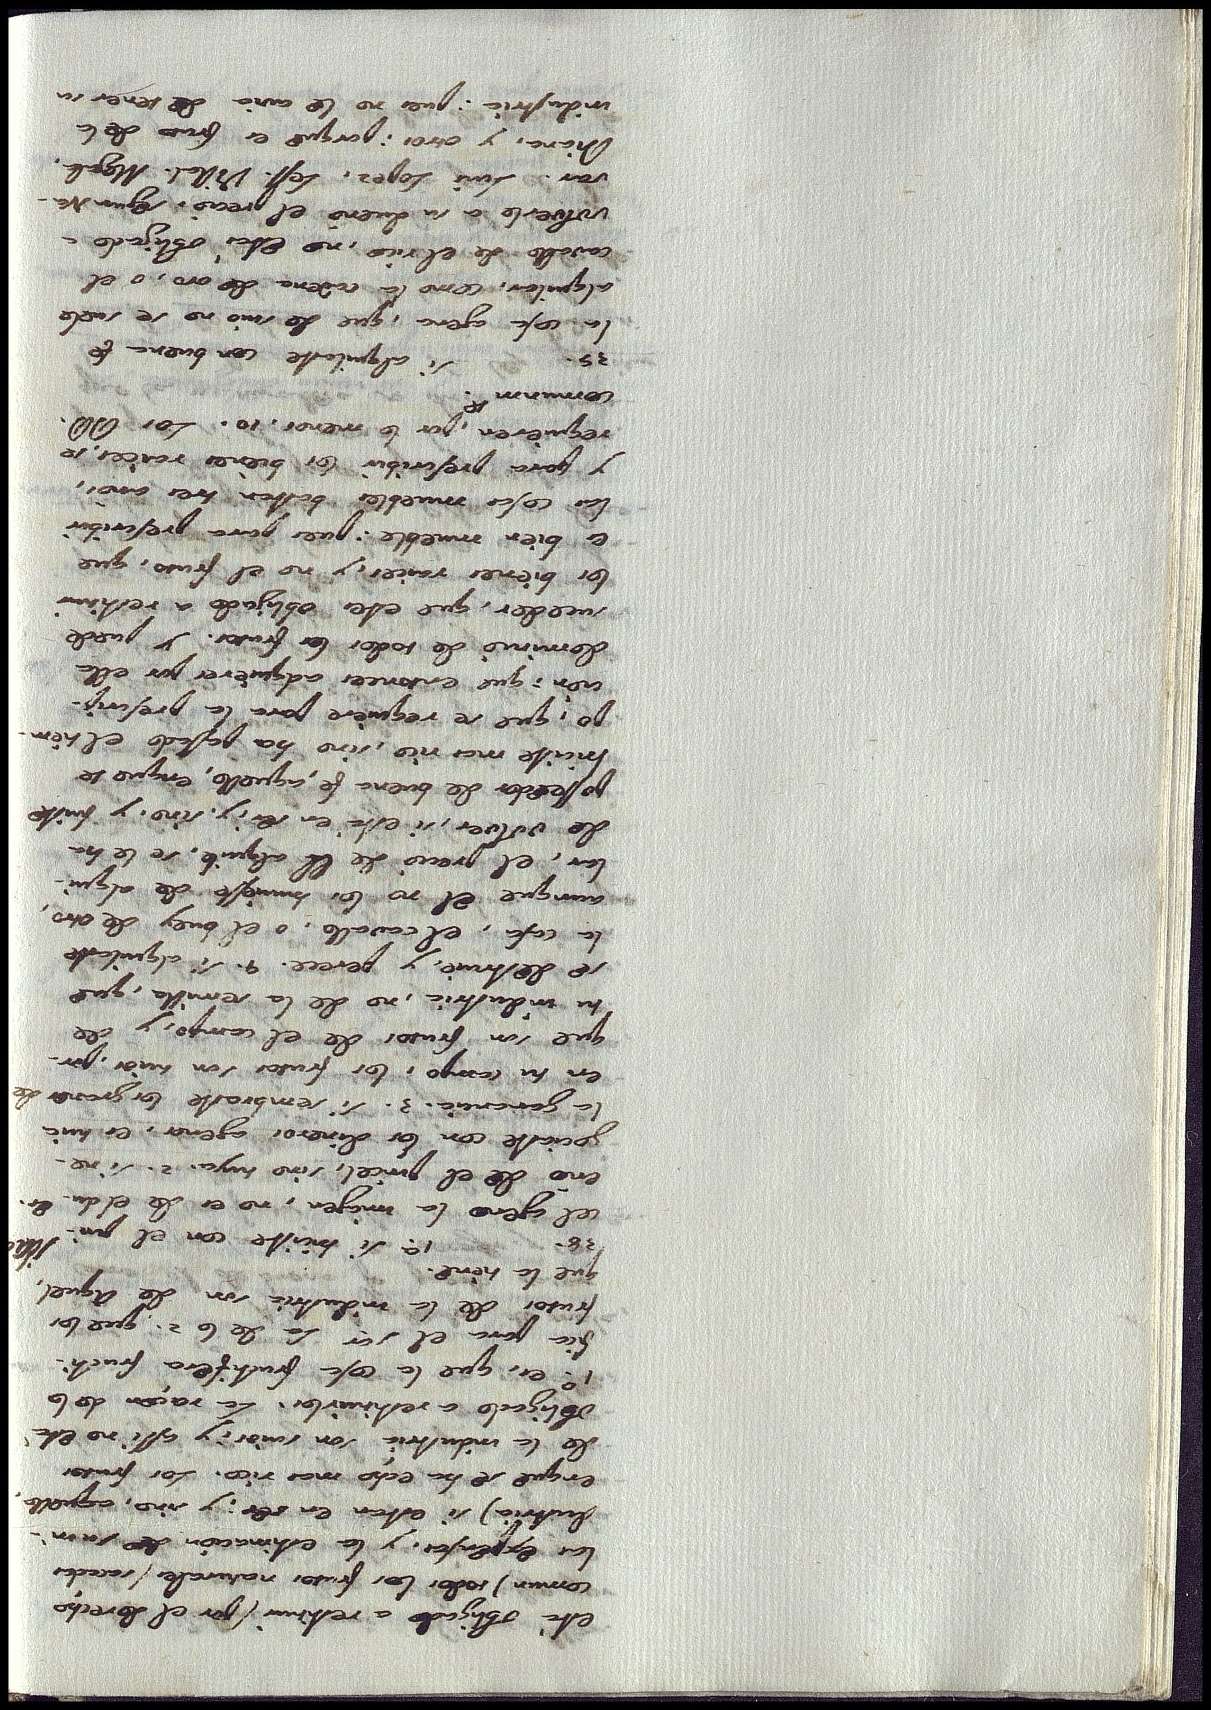 está obligado a restituir (por el derecho
comun) todos los frutos naturales (sacados
los expensas, y la estimacion de su in-
dustria) si estan en ser; y sino, aquello,
en que se ha echo mas rico. Los frutos
de la industria son suios; y assi no está
obligado a restituirlos. La raçon de lo
1º es, que la cosa fructifera fructi-
fica para el Sr. La de lo 2. que los
frutos de la industria son de Aquel,
que la tiene.
38. 1º Si hiciste con el pin-
cel ageno la imagen, no es de el du-
eño de el pincel, sino tuya. 2. Si ne-
gociaste con los dineros agenos, es tuia
la ganancia. 3. Si sembraste los granos de
en tu campo, los frutos son tuios, por-
que son frutos de el campo, y de
tu industria, no de la semilla, que
se destruie, y perece. 4. Si alquilaste
la casa, el cavallo, o el buey de otro,
aunque el no los huviesse de alqui-
lar, el precio de el alquile, se le ha
de volver, si está en ser; y sino, y fuiste
posseedor de buena fe, aquello, en que te
hiciste mas rico, sino ha passado el tiem-
po, que se requiere para la prescrip-
cion; que entonces adquieres por ella
dominio de todos los frutos. Y puede
suceder, que estes obligado a restituir
los bienes raices, y no el fruto, que
es bien mueble: pues para prescribir
las cosas muebles bastan tres años,
y para prescribir los bienes raices, se
requieren, por lo menos, 10. Los DD.
communr.
39. Si alquilaste con buena fe
la cosa agena, que de suio no se suele
alquilar, como la cadena de oro, o el
cavallo de el rico, no estás obligado a
volverlo a su dueño el precio, segun Na-
var. Luis Lopez, Less. Villal. Megal.
Diana, y otros; porque es fruto de la
industria: pues no le avia de tener su